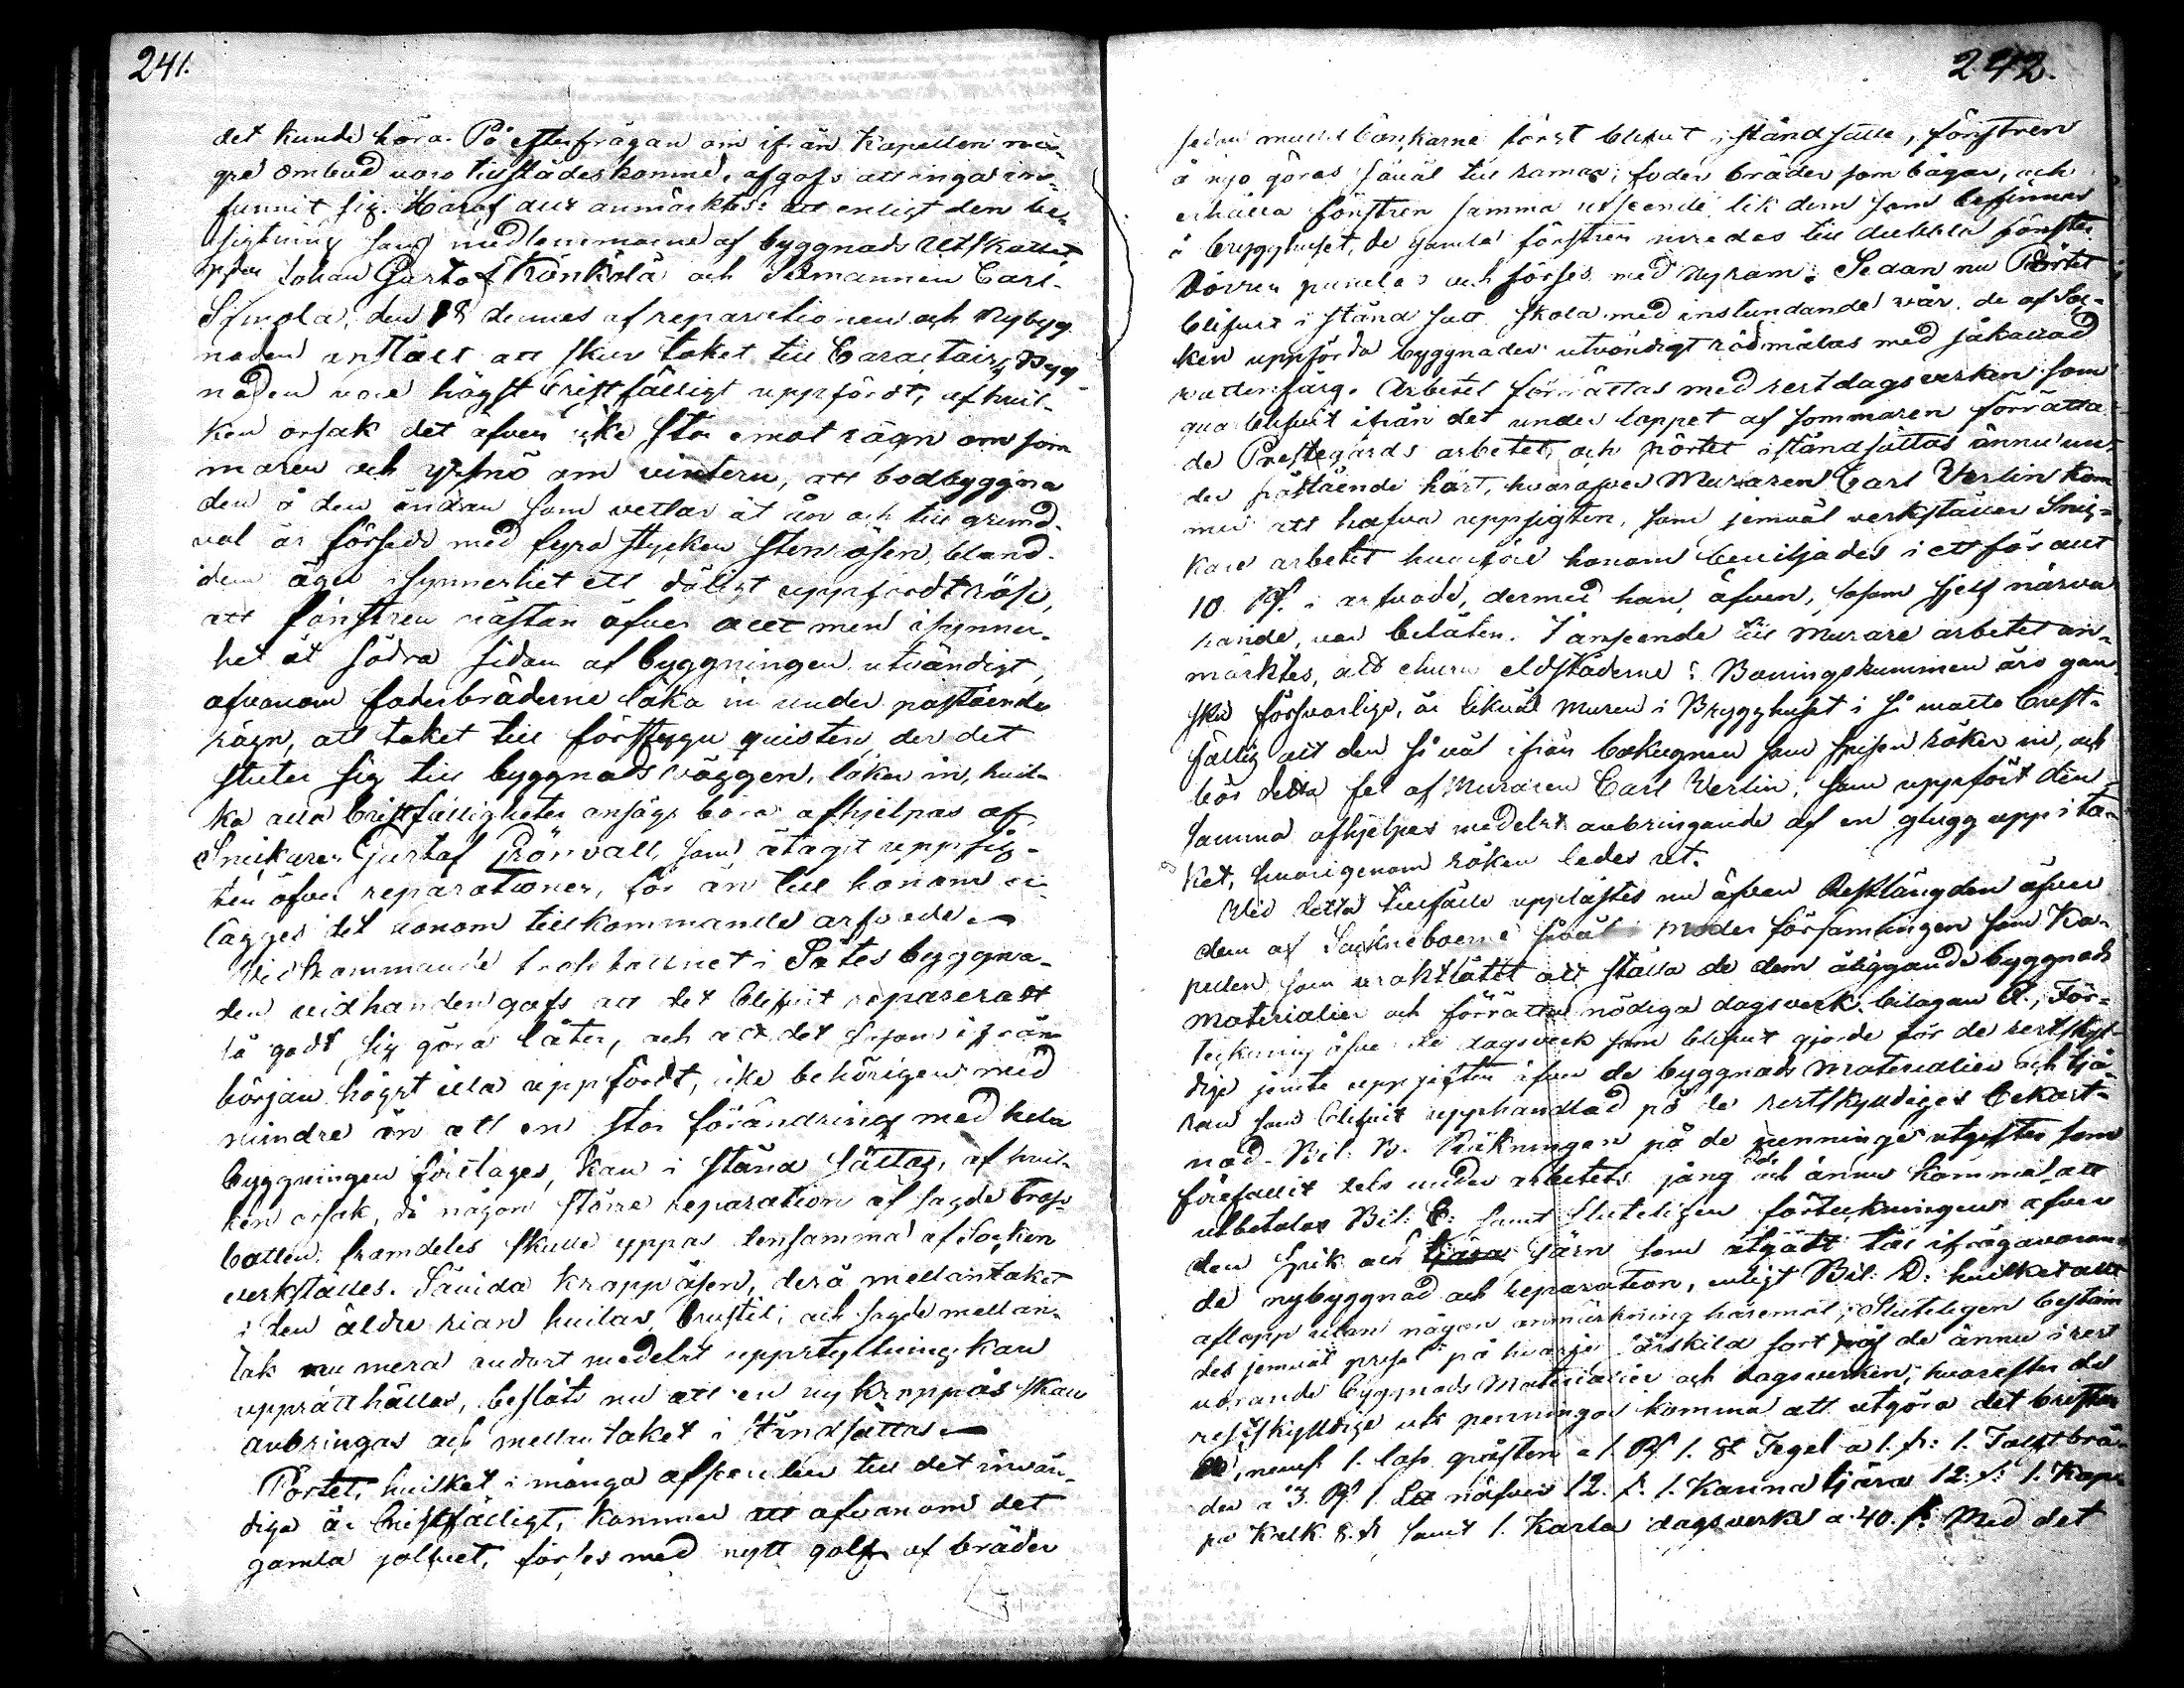 241.
det kunde höra. På efterfrågan om ifrån Kapellen nå¬
gre ombud voro tillstädeskomne, afgafs att inga in¬
funnit sig. Häraf anmärktes: att enligt den be¬
sigtning som medlemmarne af byggnads Utskottet
Johan Gustaf Rönkölä och Sexmannen Carl
Simola, den 18 dennes af reparationen och Nybygg
naden anstält att skuv taket till Caractairs Bygg¬
naden vore högst bristfälligt uppfördt, af hvil¬
ken orsak det äfven icke står emot rägn om som
maren och yrsnö om vintern, att bodbyggna
den å den ändan som vettar åt ån och till grund¬
val är försedd med fyra stycken sten ösen, bland
dem äger i synnerhet ett dåligt uppfördt röse,
att fönstren nästan öfver allt men i synner¬
het åt södra sidan af byggningen utvändigt,
ofvanom foderbräderne läka in under påstående
rägn, att taket till förstugu quisten der det
sluter sig till byggnads väggen, läker in, hvil¬
ka alla bristfälligheter ansågs böra afhjelpas af
Snickaren Gustaf Grönvall, som åtagit uppsig¬
ten öfver reparationer, för än till honom er¬
lägges det honom tillkommande arfvode.
Vidkommande trossbottnet i Sätes byggna¬
den vidhanden gafs att det blifvit repareradt
så godt sig göra låter, och att det såsom ifrån
början högst illa uppfördt, icke behörigen med
mindre än att en stor förändring med hela
byggningen företages, kan i stånd sättas, af hvil¬
ken orsak, då någon större reparation af sagde tross
botten framdeles skulle yppas densamma af Socken
verkställes. Såvida kroppåsen, derå mellantaket
i den äldre rian hvilar, brustit, och sagde mellan¬
tak nu mera endast medelst uppstyltning kan
upprätthållas, beslöts nu att en ny kroppås skall
anbringas och mellantaket i ståndsättas
Pörtet, hvilket i många afseenden till det invän¬
diga är bristfälligt, kommer att ofvanom det
gamla golfvet, förses med nytt golf af bräder
242.
sedan mullbänkarne först blifvit i ståndsatte, fönstren
å nyo göras såväl till ramar, foder bräder som bågar, och
erhålla fönstren samma utseende lik dem som befinnas
å brygghuset, de gamla fönstren inredas till dubbla fönster
Dörren panelas och förses med ny ram. Sedan nu Pörtet
blifvit i stånd satt skola med instundande vår de af Soc¬
ken uppförda byggnader utvändigt rödmålas med såkallad
vattenfärg. Arbetet förrättas med restdagsverken som
qvarblifvit ifrån det under loppet af sommaren förrätta
de Prestegårds arbetet, och pörtet iståndsättas ännu un¬
der påstående höst, hvaröfver Muraren Carl Verlin kom
mer att hafva uppsigten, som jemväl verkställer Snic¬
kare arbetet hvarföre honom beviljades i ett för allt
10 Rf. i arfvode, dermed han äfven, såsom sjelf närva
rande, var belåten. I anseende till Murare arbetet an¬
märktes, att ehuru eldstäderne i Boningsrummen äro gan
ska försvarlige, är likväl muren i Brygghuset i så motto brist¬
fällig att den så väl ifrån bakugnen som spisen röker in, och
bör detta fel af Muraren Carl Verlin, som uppfört den¬
samma afhjelpas medelst anbringande af en glugg upp i ta¬
ket, hvarigenom röken ledes ut.
Vid detta tillfälle upplästes nu äfven Restlängden öfver
dem af Sockneboerne såväl i moder församlingen som Ka¬
pellen som uraktlåtit att ställa de dem åliggande byggnads
Materialier och förrätta nödiga dagsverk bilagan A., För¬
teckning öfver de dagsverk som blifvit gjorde för de restskyl¬
dige jemte uppgiften öfver de byggnads Materialier och tjä¬
ran som blifvit upphandlad på de restskyldiges bekost¬
nad. Bil: B. Räkningen på de penninge utgifter som
förefallit dels under arbetets gång dels och ännu komma att
utbetalas Bil: C: samt sluteligen förteckningen öfver
den Spik och tjära Järn som åtgått till ifrågavaran¬
de nybyggnad och reparation, enligt Bil: D: hvilket allt
aflopp utan någon anmärkning häremot; Sluteligen bestäm
des jemväl priset på hvarje särskild sort af de ännu i rest
varande byggnads Materialier och dagsverken, hvarefter de
restskyldige uti penningar komma att utgöra det bristan
de, neml. 1. lass gråsten a 1. Rf. 1. st Tegel a 1. s: 1. Tolft brä¬
der a 3. Rf. 1. L℔ näfver 12. s. 1. Kanna tjära 12. s: 1. Kap¬
pe Kalk 8. s samt 1. Karla dagsverke a 40. s: Med det